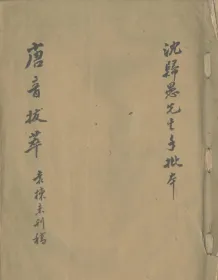 沈歸愚先生手批本
唐音拔萃 未刊稿